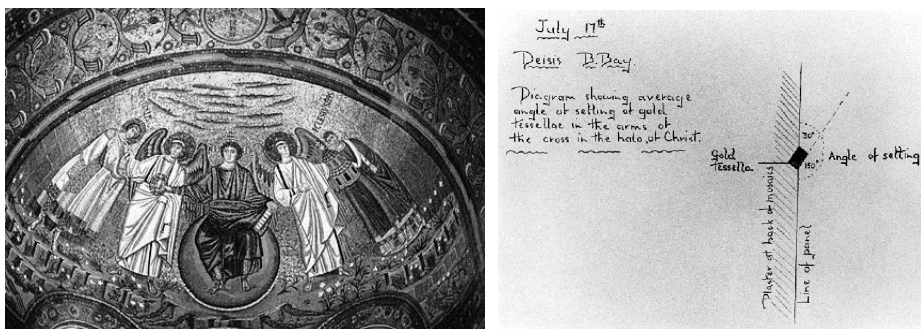 July 17th
Deisis B. Bay.
Diagram showing average
angle of setting of gold
tessellae in the arms of
the cross in the halo of Christ.
30°
Gold
Tessella
Angle of setting
150°
Plaster at back of mosaics
Line of panel